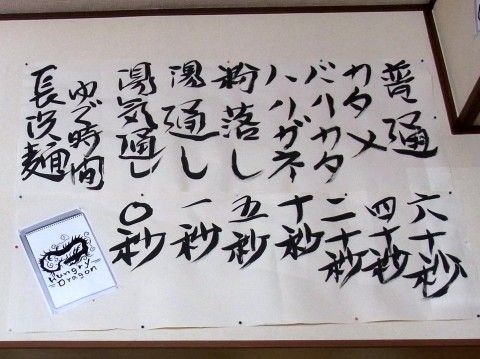 普通 六十秒
カタメ 四十秒
バリカタ 二十秒
ハリガネ 十秒
粉落し 五秒
湯通し 一秒
湯気通し 〇秒
ゆで時間
長浜麺
Hungry
Dragon